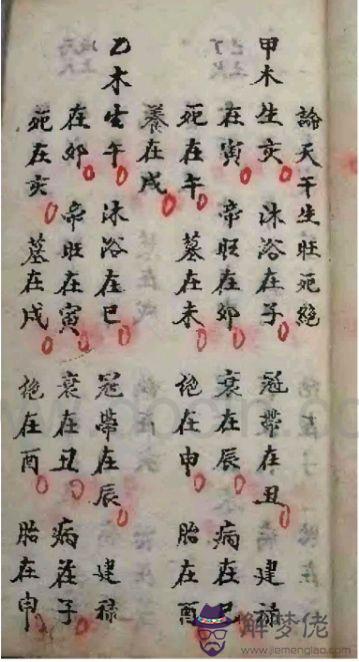 論天干生旺死絕
甲木生亥 沐浴在子 冠帶在丑 建祿
在寅 帝旺在卯 衰在辰 病在巳
死在午 墓在未 绝在申 胎在酉
養在戌
乙木生午 沐浴在巳 冠帶在辰 建祿
在卯 帝旺在寅 衰在丑 病在子
死在亥 墓在戌 绝在酉 胎在申
解梦佬
www.jiemenglao.com